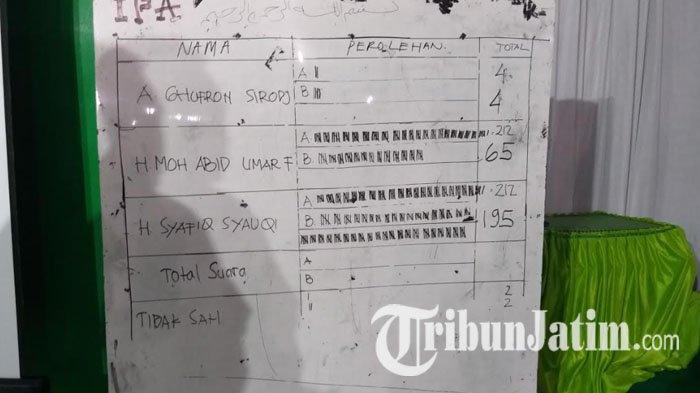 IPA
NAMA PEROLEHAN TOTAL
A GHUFRON SIRODJ A 4
B 4
H. MOH ABID UMAR F A 212
B. 65
H SYAFIQ SYAUQI A 212
B. 195
Total Suara A
B
TIDAK SAH 2
2
TribunJatim.com